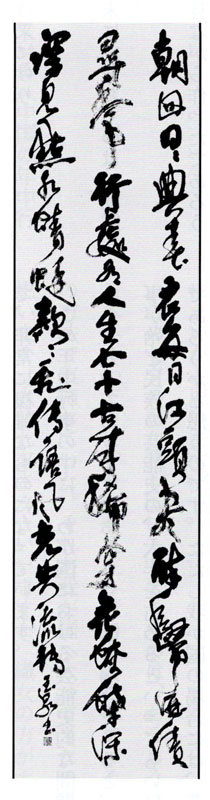 朝回日々典春衣每日江頭盡醉歸酒債
尋常行處有人生七十古來稀穿花蛺蝶深
深見點水蜻蜓款々飛傳語風光共流轉